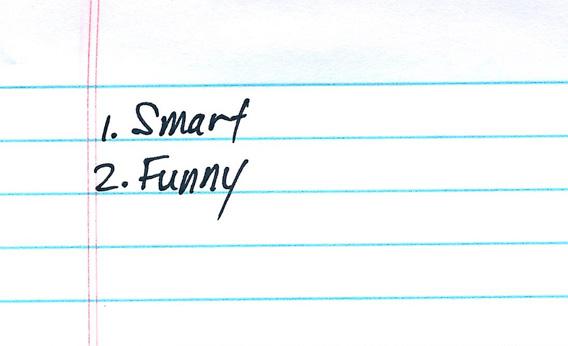 1. Smart
2. Funny